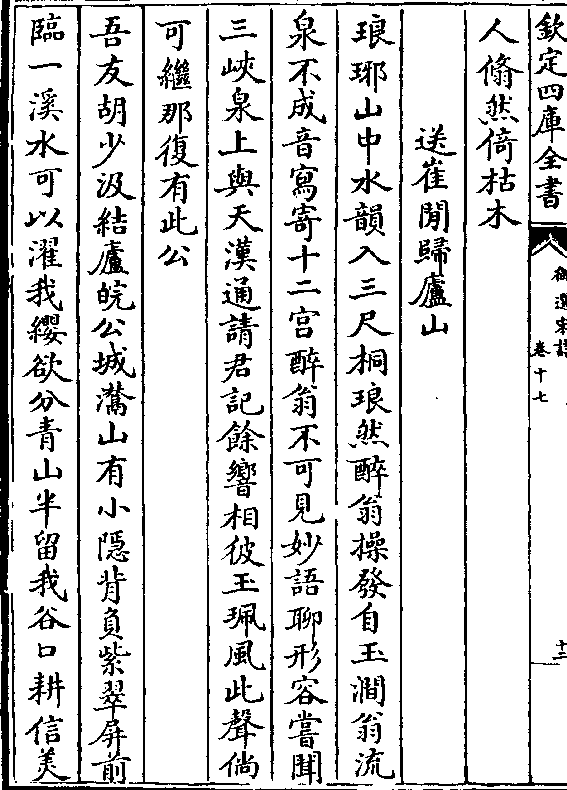 欽定四庫全書
御選宋詩
卷十七
十二
人翛然倚枯木
送崔閒歸廬山
琅琊山中水韻入三尺桐琅然醉翁操發自玉澗翁流
泉不成音寫寄十二宫醉翁不可見妙語聊形容嘗聞
三峽泉上與天漢通請君記餘響相彼玉珮風此聲倘
可繼那復有此公
吾友胡少汲結廬皖公城灊山有小隱背負紫翠屏前
臨一溪水可以濯我纓欲分青山半留我谷口耕信美